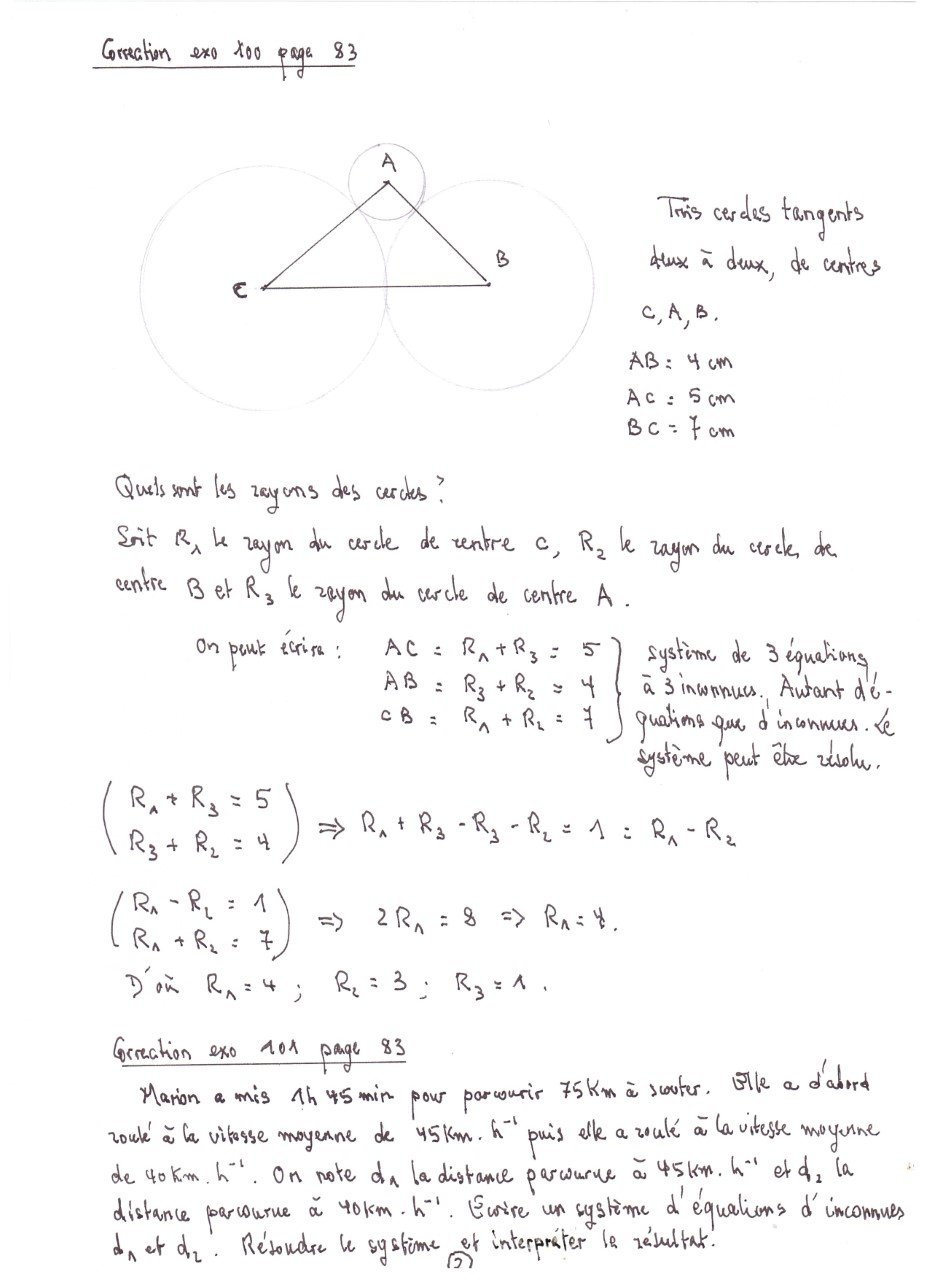 Correction exo 100 page 83
A
B
C
Trois cercles tangents
deux à deux, de centres
C, A, B.
AB = 4 cm
AC = 5 cm
BC = 7 cm
Quels sont les rayons des cercles ?
Soit R₁ le rayon du cercle de centre C, R₂ le rayon du cercle de
centre B et R₃ le rayon du cercle de centre A.
On peut écrire : AC = R₁ + R₃ = 5
AB = R₃ + R₂ = 4
CB = R₁ + R₂ = 7
système de 3 équations
à 3 inconnues. Autant d'é-
quations que d'inconnues. Le
système peut être résolu.
R₁ + R₃ = 5
R₃ + R₂ = 4
⇒ R₁ + R₃ - R₃ - R₂ = 1 = R₁ - R₂
R₁ - R₂ = 1
R₁ + R₂ = 7
⇒ 2R₁ = 8 ⇒ R₁ = 4.
D'où R₁ = 4 ; R₂ = 3 ; R₃ = 1.
Correction exo 101 page 83
Marion a mis 1h 45 min pour parcourir 75 Km à scooter. Elle a d'abord
roulé à la vitesse moyenne de 45 Km. h⁻¹ puis elle a roulé à la vitesse moyenne
de 40 Km. h⁻¹. On note d₁ la distance parcourue à 45 km. h⁻¹ et d₂ la
distance parcourue à 40 km. h⁻¹. Ecrire un système d'équations d'inconnues
d₁ et d₂. Résoudre le système et interpréter le résultat.
2